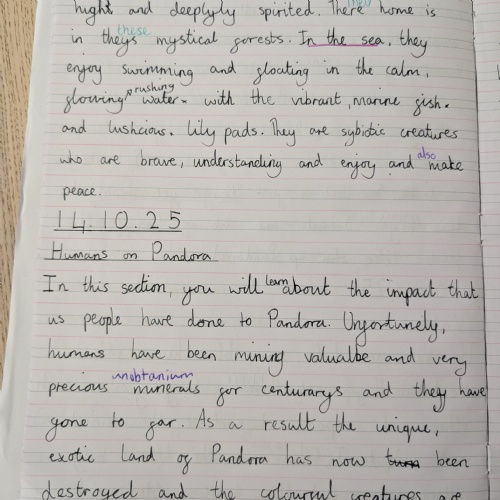 hight and deeplyly spirited. There they home is
in theys these mystical forests. In the sea, they
enjoy swimming and floating in the calm,
flowing, rushing water. with the vibrant, marine fish.
and lushcious. lily pads. They are sybiotic creatures
who are brave, understanding and enjoy and also make
peace.
14.10.25
Humans on Pandora
In this section, you will learn about the impact that
us people have done to Pandora. Unfortunely,
humans have been mining valualbe and very
precious unobtanium minerals for centurarys and they have
gone to far. As a result the unique,
exotic land of Pandora has now turn been
destroyed and the colourful creatures are